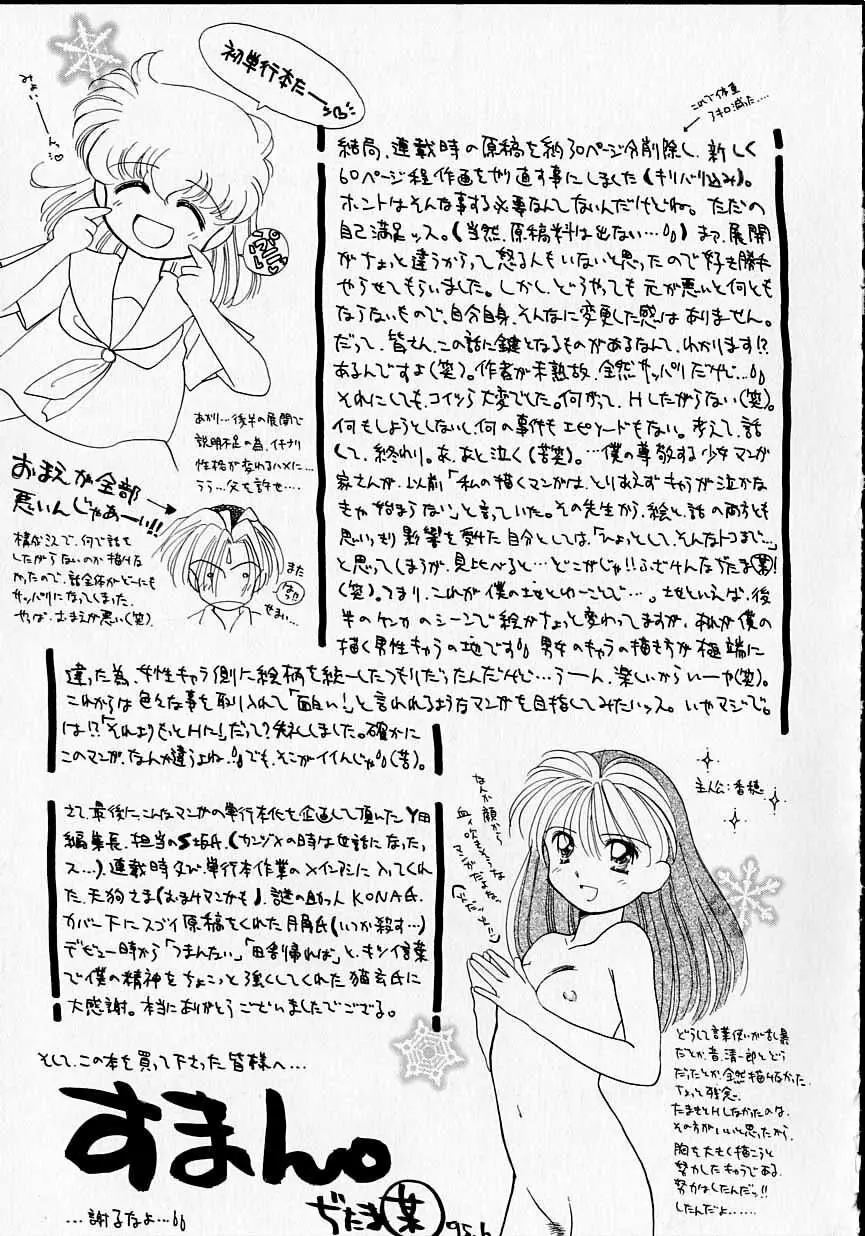 初単行本だーー
みょい
ーんっ
これで体重
7キロ減った…
結局、連載時の原稿を約30ページ分削除し、新しく
60ページ程作画をやり直す事にしました(キリバリ込み)。
ホントはそんな事する必要なんてないんだけどね。ただの
自己満足ッス。(当然、原稿料は出ない…)まァ、展開
がちょっと違うからって怒る人もいないと思ったので好き勝手
やらせてもらいました。しかし、どうやっても元が悪いと何とも
ならないもので、自分自身、そんなに変更した感はありません。
だって、皆さん、この話に鍵となるものがあるなんて、わかります!?
あるんですよ(笑)。作者が未熟故、全然サッパリだけど…
それにしても、コイツら大変でした。何がって、Hしたがらない(笑)。
何もしようとしないし、何の事件もエピソードもない。考えて、話
して、終わり。あ、あと泣く(苦笑)。…僕の尊敬する少女マンガ
家さんが、以前「私の描くマンガは、とりあえずキャラが泣かな
きゃ始まらない」と言っていた。その先生から、絵と話のあども
思いっきり影響を受けた自分としては、「ひょっとして、そんなトコまで…」
と思ってしまうが、見比べると…どこがじゃ!!ふざけんなぢたま(某)!
(笑)。つまり、これが僕の地とゆーことで…。地といえば、後
半のケンカのシーンで絵がちょっと変わってますが、あれが僕の
描く男性キャラの地です 男女のキャラの描き方が極端に
違った為、女性キャラ側に絵柄を統一したつもりだったんだけど…うーん、楽しいからいーや(笑)。
これからは色々な事を取り入れて「面白い!」と言われるようなマンガを目指してみたいッス。いやマジで。
は!?「それよりもっとHに!」だって?失礼しました。確かに
このマンガ、なんか違うよね でも、そこがイイんじゃ(苦)。
あかり…後半の展開で
説明不足の為、イキナリ
性格が変わるハメに…
うう…父を許せ…
おまえが全部
悪いんじゃあーい!!
構成上で、何で話を
したがらないのか描けな
かったので、話全体がどーにも
サッパリになってしまった。
やっぱ、おまえが悪い(笑)
また
せまい…
さて、最後に、こんなマンガの単行本化を企画して頂いたY田
編集長、担当のS坂氏、(カンヅメの時は世話になったッ
ス…)、連載時及び、単行本作業のメインアシに入ってくれ
た、天狗さま(おまけマンガも)、謎の助っ人KONA氏、
カバー下にスゴイ原稿をくれた月角氏(いつか殺す…)
デビュー時から「つまんない」「田舎帰れば」と、キツイ言葉
で僕の精神をちょこっと強くしてくれた猫玄氏に
大感謝。本当にありがとうございましたでござる。
主人公:香穂
なんか顔から
血ィ吹きそうな
マンガだよね
どうして言葉使いが乱暴
だとか、昔、清一郎とどう
だったとか、全然描けなかった。
ちょっと残念。
たまきとHしなかったのは、
その方がいいと思ったから。
胸を大きく描こうと
努力したキャラである。
努力はしたんだッ!!
したんだよ……
そして、この本を買って下さった皆様へ…
すまん。
…謝るなよ…
ぢたま(某)
95.6